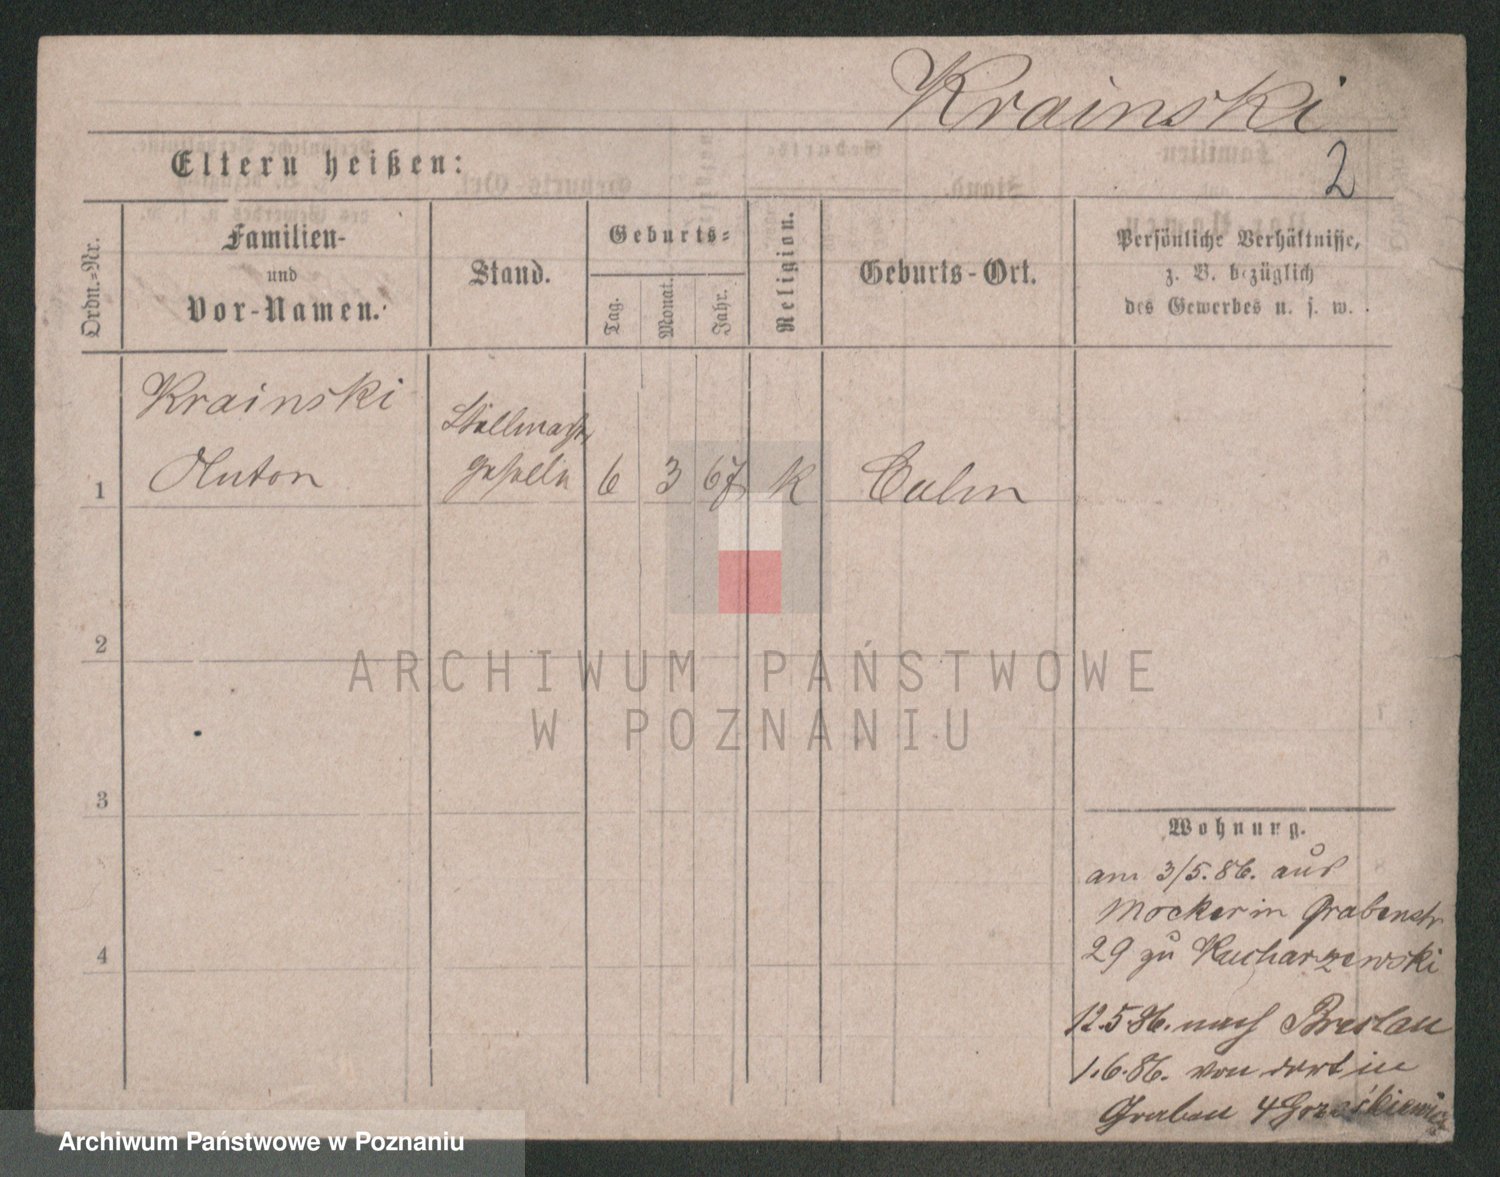 Krainski
Eltern heißen:
2
Ordn.-Nr.
Familien-
und
Vor-Namen.
Stand.
Geburts-
Tag.
Monat.
Jahr.
Religion.
Geburts-Ort.
Persönliche Verhältnisse,
z. B. bezüglich
des Gewerbes u. s. w.
Krainski
Stellmach
1 Anton geselle 6 3 67 K Culm
2
3
4
Wohnung.
am 3/5.86. aus
Mocker in Grabenstr
29 zu Kucharzewski
12.5 86. nach Breslau
1.6.86. von dort in
Graben 4
ARCHIWUM PAŃSTWOWE
W POZNANIU
Archiwum Państwowe w Poznaniu